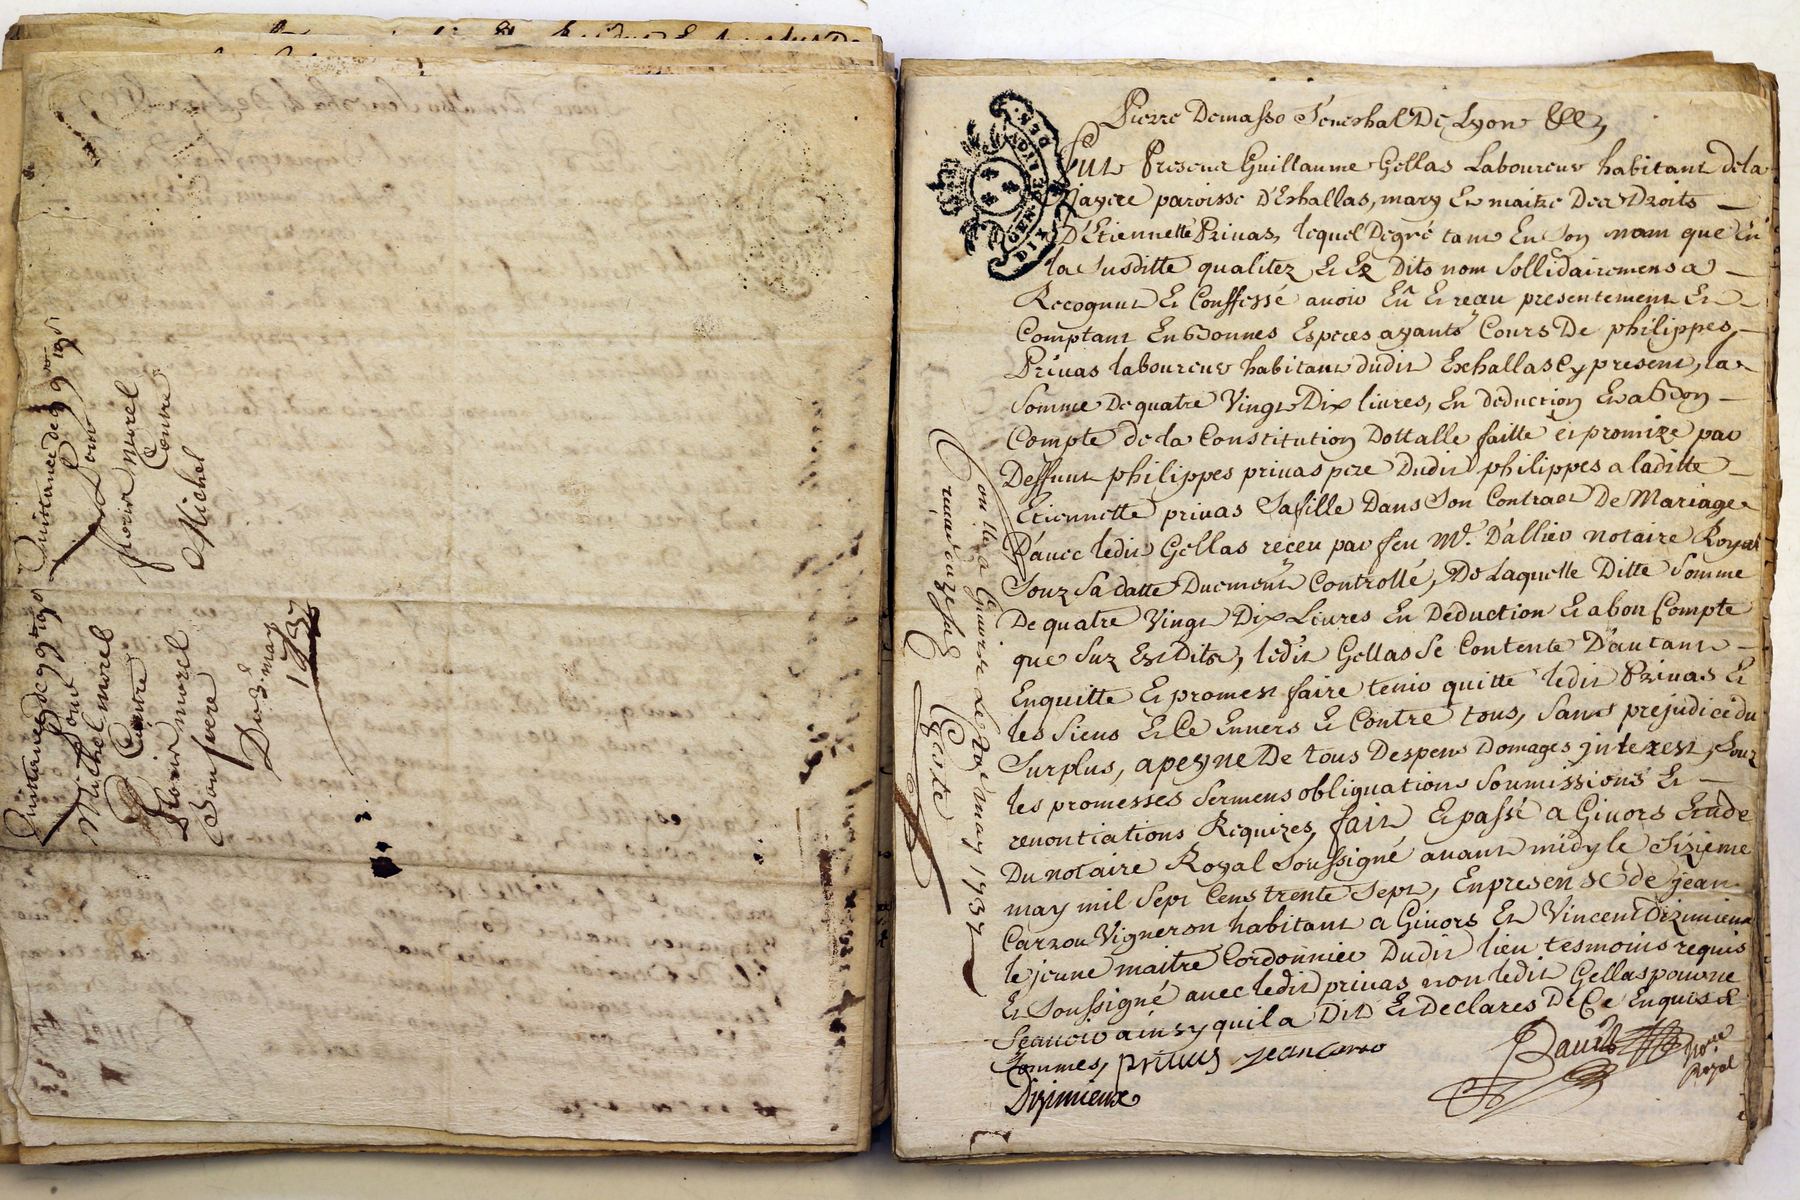 Quittance de 99 lt 19 s
Pour
florir morel
Contre
Michel
Quittance de 99 lt 19 s
Pour
Michel morel
Contre
florir morel
Son frere
Du 3e may
1737
Pierre Demasso Senechal De Lyon &&
Fut Present Guillaume Gellas Laboureur habitant de la
Jayere paroisse D'Echallas, mary Et maitre Des Droits
D'Etiennette Privas, lequel De gré tant En Son nom que En
la Susditte qualitez, Et Ez Dits nom Sollidairement a
Recognut Et Conffessé avoir Eû Et receu presentement Et
Comptant En bonnes Especes ayants Cours De philippes
Privas laboureur habitant dudit Echallas Cy present, la
Somme De quatre Vingt Dix livres, En deduction Et a bon
Compte de la Constitution Dottalle faitte et promize par
Deffunt philippes privas pere Dudit philippes a laditte
Etiennette privas Sa fille Dans Son Contract De Mariage
D'avec ledit Gellas receu par feu Me. Dallier notaire Royal
Souz Sa datte Duement Controllé, De Laquelle Ditte Somme
De quatre Vingt Dix Livres En Deduction Et a bon Compte
que Suz Est Dits, ledit Gellas Se Contente D'autant
Enquitte Et promet faire tenir quitte ledit Privas Et
les Siens Et Ce Envers Et Contre tous, Sans prejudice du
Surplus, a peyne De tous Despens Domages interest, Souz
les promesses Sermens obligations Soumissions Et
renontiations Requizes, fait Et passé a Givors Etude
Du notaire Royal Soussigné avant midy le Sizieme
may mil Sept Cens trente Sept, En presense de jean
Carrou Vigneron habitant a Givors Et Vincent Dizimieux
le jeune maitre Cordonnier Dudit lieu tesmoins requis
Et Soussigné avec ledit privas non ledit Gellas pour ne
Sçavoir ainsy quil a Dit Et Declares De Ce Enquis &
Sommes, privas jean Carro
Dizimieux
Not.re
Royal
Con.llé a Givors Le 7e may 1737
Reçu douze sols